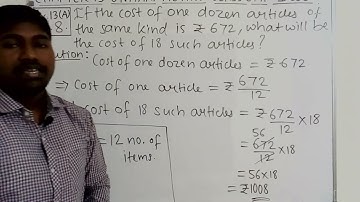 13(A) If the cost of one dozen articles of
8. the same kind is ₹ 672, what will be
the cost of 18 such articles?
ution: Cost of one dozen articles = ₹ 672
⇒ Cost of one article = ₹ 672/12
cost of 18 such articles = ₹ 672/12 × 18
= 12 no. of
items.
56
= 672/12 × 18
= 56×18
= ₹1008